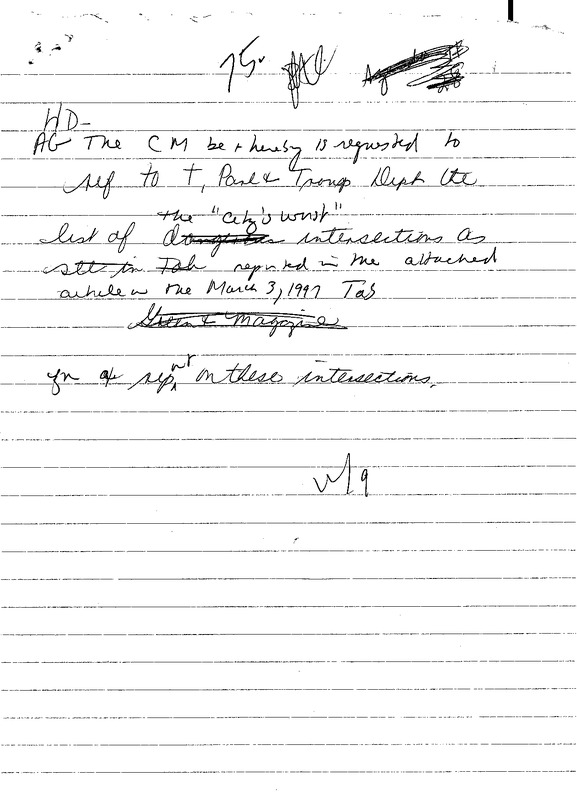 75.
HD-
AG The CM be & hereby is requested to
ref to T, Park & Transp Dept the
the "city's worst"
list of dangerous intersections as
see in Tab reported in the attached
article in the March 3, 1997 Tab
Magazine
for a rept on these intersections.